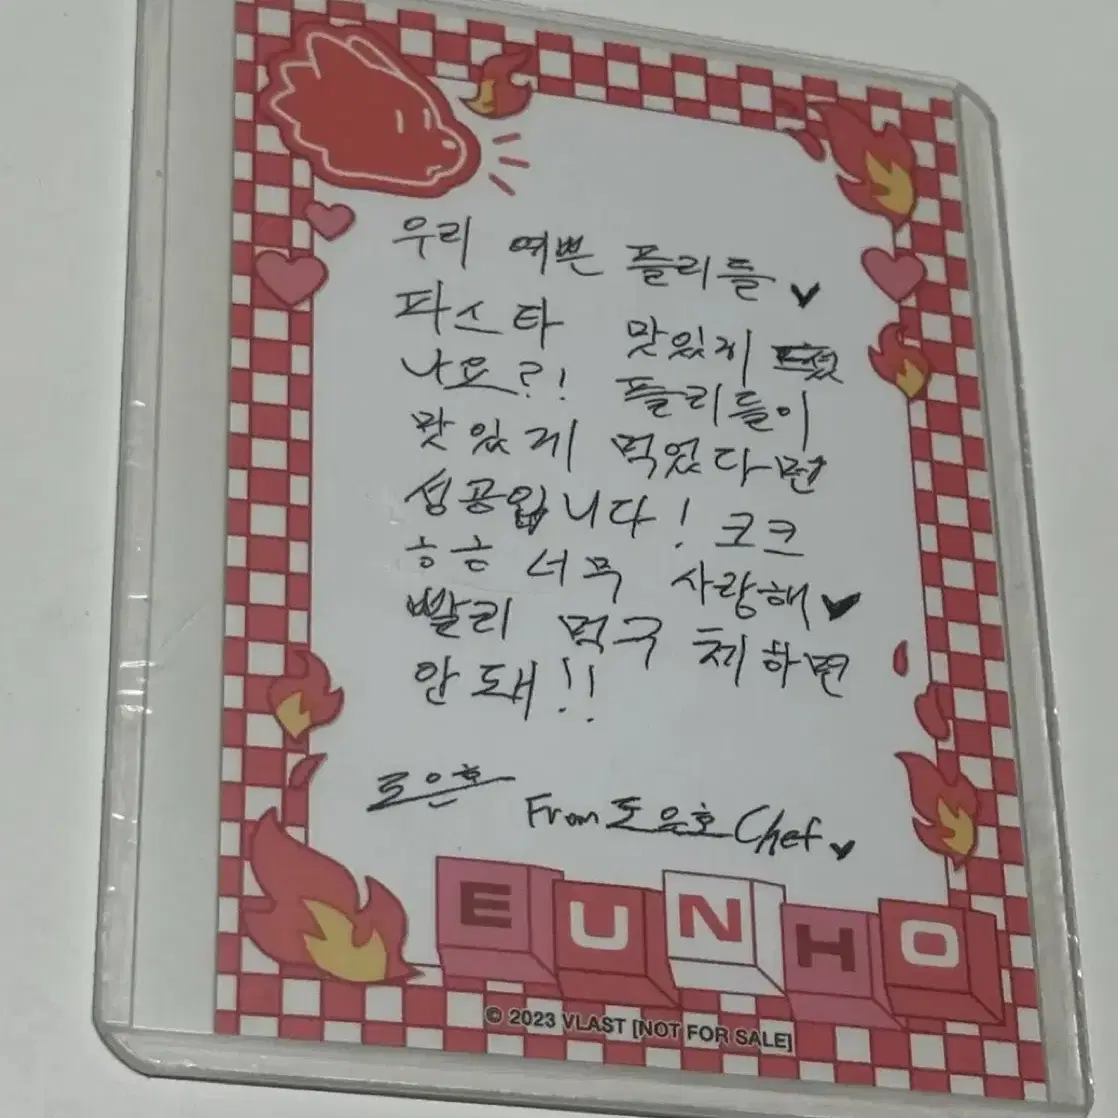 우리 예쁜 플리들
파스타 맛있게 드셨
나요?!  플리들이
맛있게 먹었다면
성공입니다! 크크
ㅎㅎ 너무 사랑해
빨리 먹구 체하면
안돼!!
도은호
From 도은호 Chef
EUNHO
© 2023 VLAST [NOT FOR SALE]